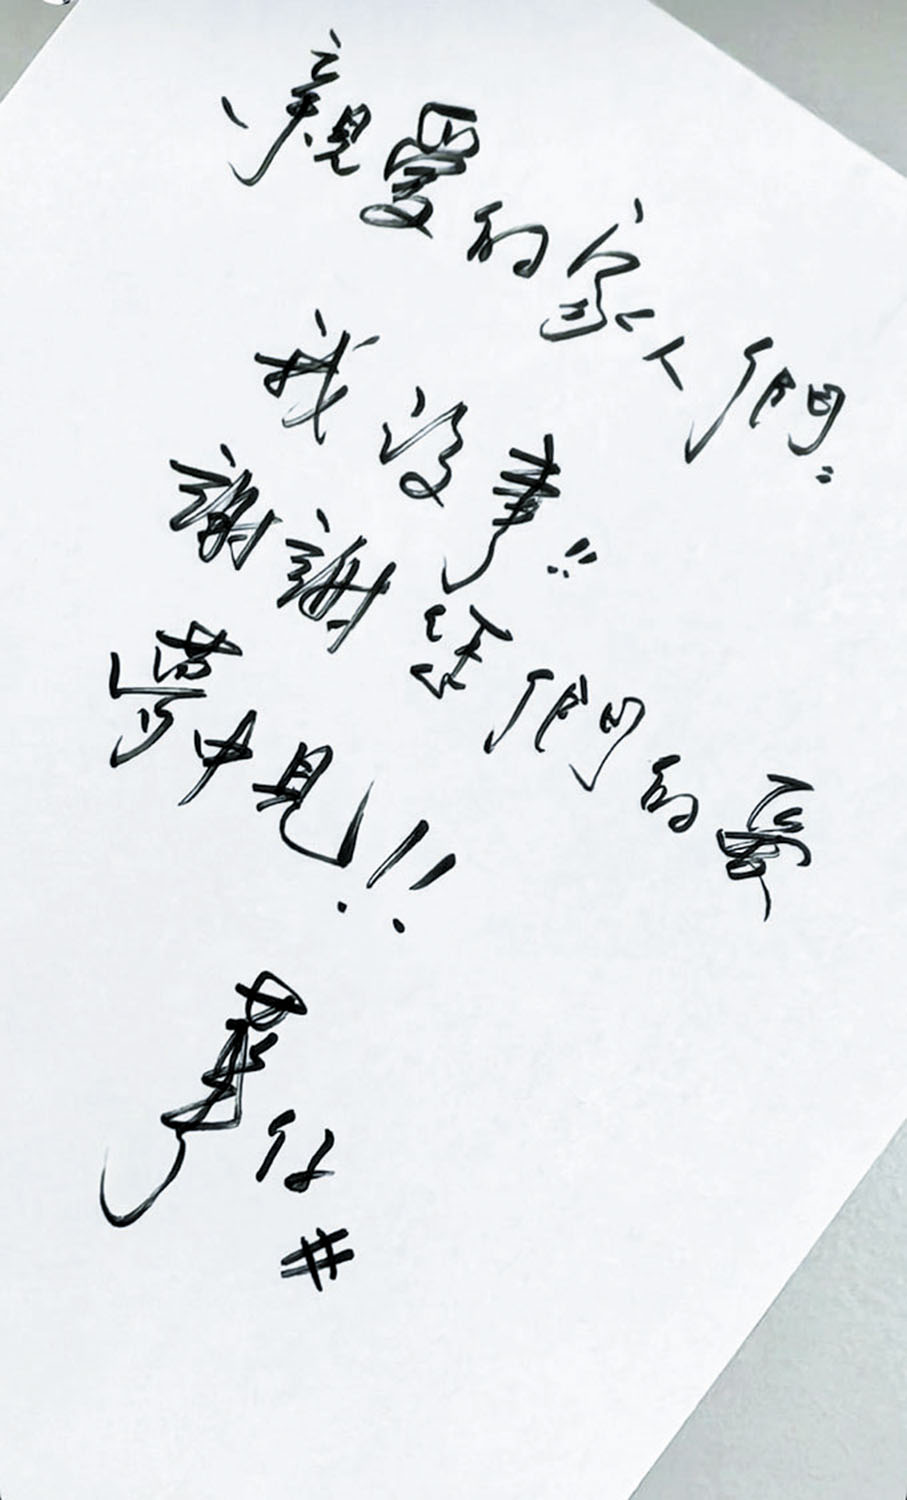 親愛的家人們：
我沒事!!
謝謝你們的愛
夢中見!!
華仔
#